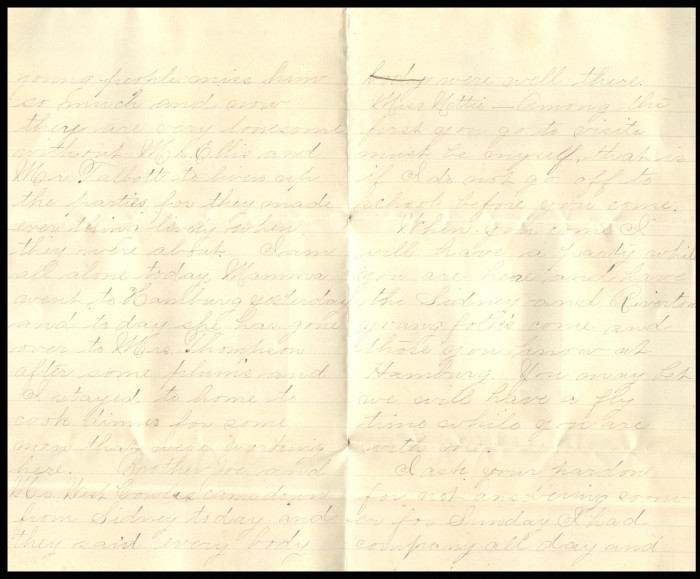 young people miss him
so much and now
they are very lonesome
without Mr. Ellis and
Mr. Talbott to liven up
the parties for they made
everything lively when
they were about. I am
all alone today Mamma
went to Hamburg yesterday
and today she has gone
over to Mrs. Thompson
after some plums and
I stayed to home to
cook dinner for some
men that were working
here. Brother Joe and
Mr. West Cowles came down
from Sidney today, and
they said every body
body were well there.
Miss Mettie — Among the
first you go to visite
must be myself, that is
if I do not go off to
school before you come.
When you come I
will have a party while
you are hear and have
the Sidney and Riverton
young folks come, and
those you know at
Hamburg. You may bet
we will have a fly
time while you are
with me.
I ask your pardon
for not answering soon
er for Sunday I had
company all day and